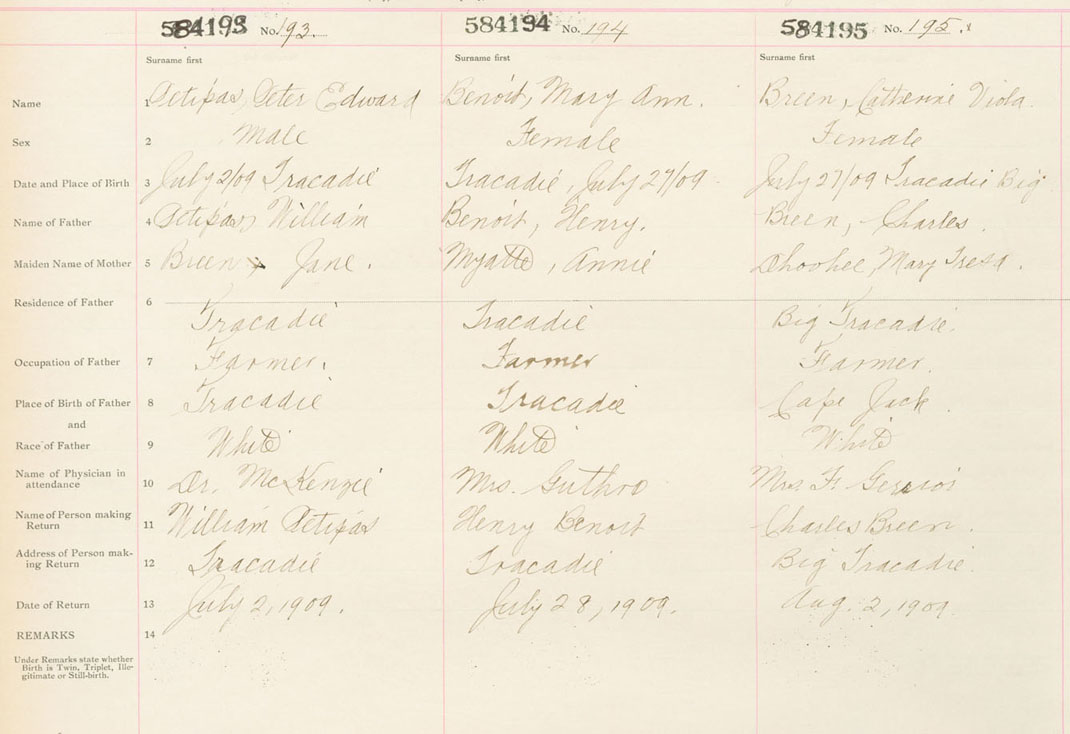 584193 No. 193.
584194 No. 194
584195 No. 195.
Surname first Surname first Surname first
Name 1 Petipas, Peter Edward Benoit, Mary Ann. Breen, Catherine Viola.
Sex 2 Male Female Female
Date and Place of Birth 3 July 2/09 Tracadie Tracadie, July 27/09 July 27/09 Tracadie Big
Name of Father 4 Petipas, William Benoit, Henry. Breen, Charles.
Maiden Name of Mother 5 Breen, Jane. Myatte, Annie Mary Tresa.
Residence of Father 6 Tracadie Tracadie Big Tracadie.
Occupation of Father 7 Farmer. Farmer Farmer.
Place of Birth of Father 8 Tracadie Tracadie Cape Jack.
and
Race of Father 9 White White White
Name of Physician in
attendance 10 Dr. McKenzie Mrs. Guthro Mrs. F.
Name of Person making
Return 11 William Petipas Henry Benoit Charles Breen.
Address of Person mak-
ing Return 12 Tracadie Tracadie Big Tracadie.
Date of Return 13 July 2, 1909. July 28, 1909. Aug. 2, 1909.
REMARKS 14
Under Remarks state whether
Birth is Twin, Triplet, Ille-
gitimate or Still-birth.